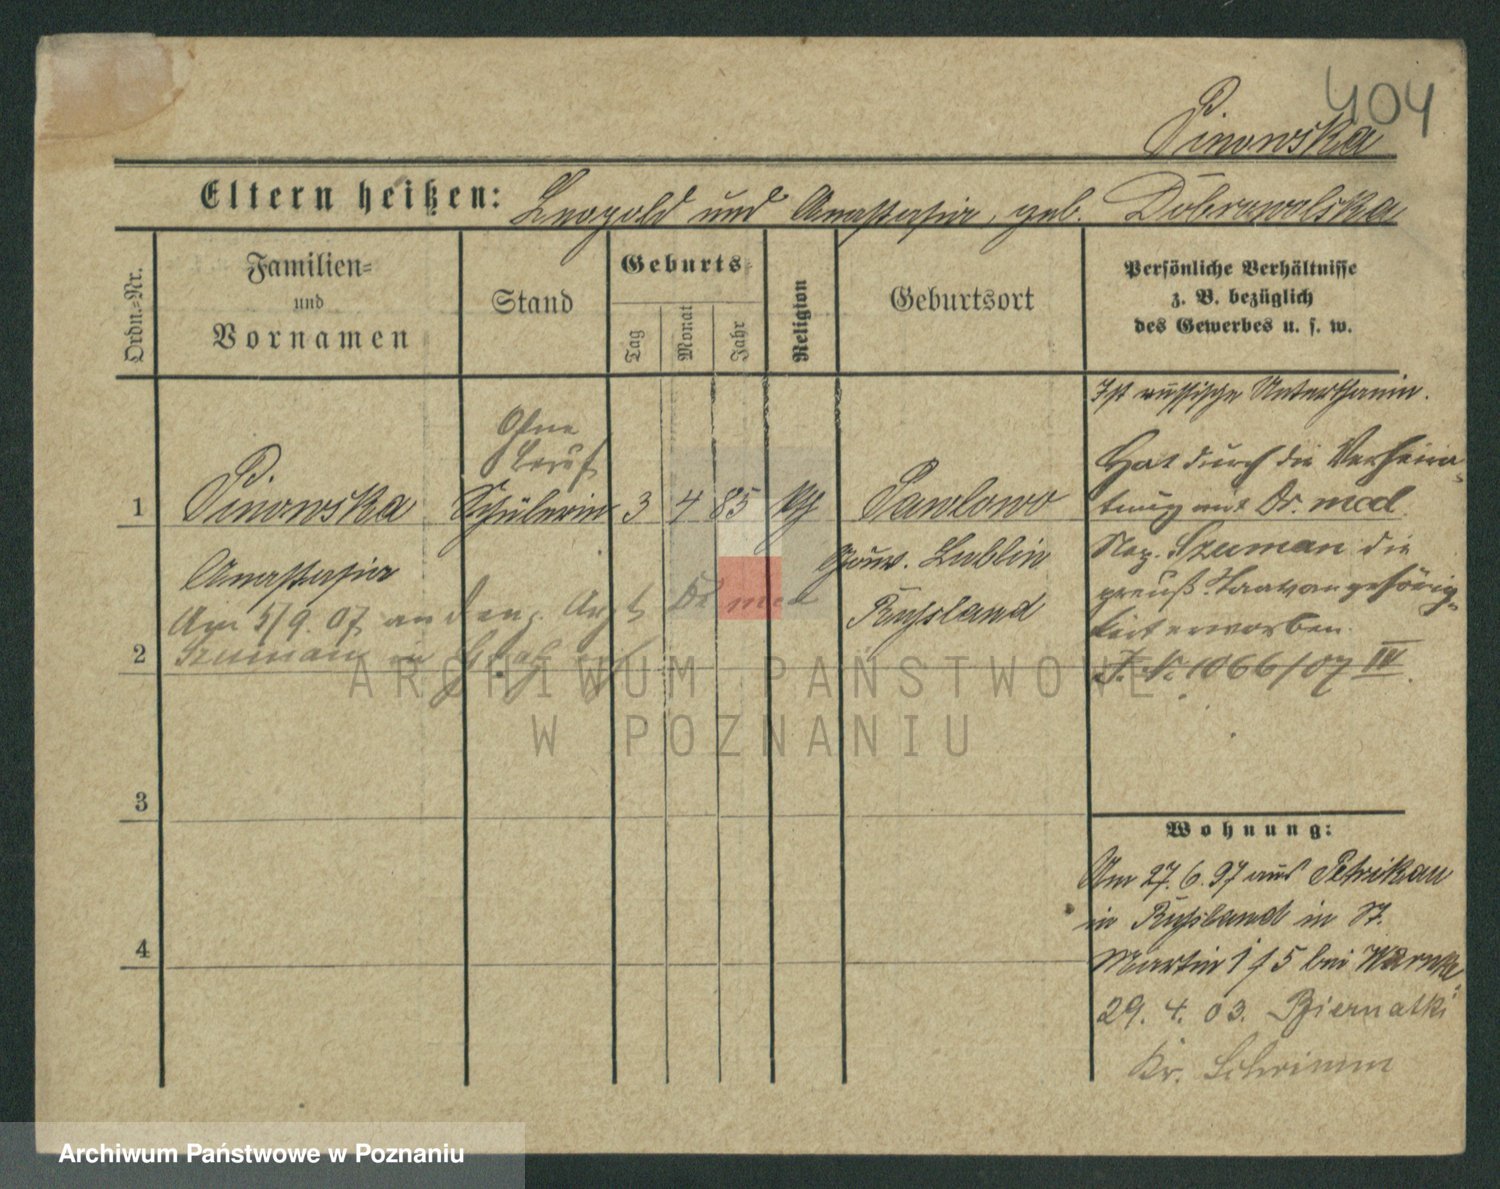 404
Pinowska
Eltern heißen: Leopold und Anastasia, geb. Dobrowolska
Ordn.-Nr.
Familien-
und
Vornamen
Stand
Geburts-
Tag
Monat
Jahr
Religion
Geburtsort
Persönliche Verhältnisse
z. B. bezüglich
des Gewerbes u. s. w.
Ist russische Unterthanin.
Ohne
Beruf
1 Pinowska Schülerin 3 4 85 Pawlowo
Anastasia
Gouv. Lublin
Russland
Am 5/9. 07 an den Arzt Dr med
2 Szuman in
Hat durch die Verheira-
tung mit Dr. med.
Szuman die
preuß. Staatsangehörig-
keit erworben.
J. N. 1066/07 IV.
3
4
Wohnung:
Am 27. 6. 97 aus Petrikau
in Russland in St.
Martin bei Warnka
29. 4. 03. Biernatki
Kr. Schrimm
ARCHIWUM PAŃSTWOWE
W POZNANIU
Archiwum Państwowe w Poznaniu